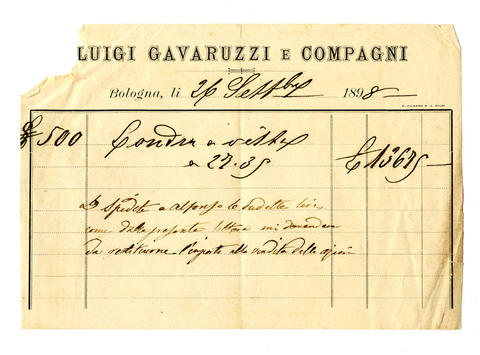 LUIGI GAVARUZZI E COMPAGNI
Bologna, li 26 Settbre 1898
£ 500 Londra a vista £ 13675
a 27.35
Spedite a Alfonso le sudette lire
come dalla presente lettera mi domandera
da restituirne l'importo alla vendita delle